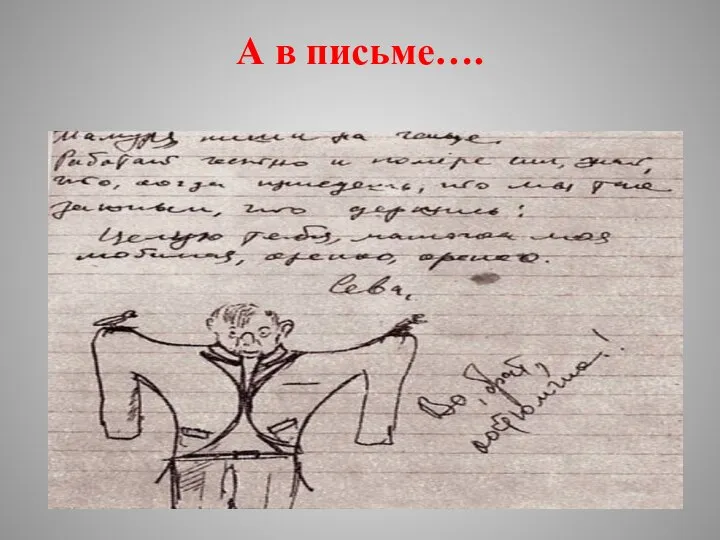 А в письме….
Мамуля, пиши на
Работай честно и помере сил, знай,
что, когда приедешь, что мы так
заживем, что держись!
Целую тебя, мамочка моя
любимая, крепко, крепко.
Сева.
Во, брат,
костюмчик!